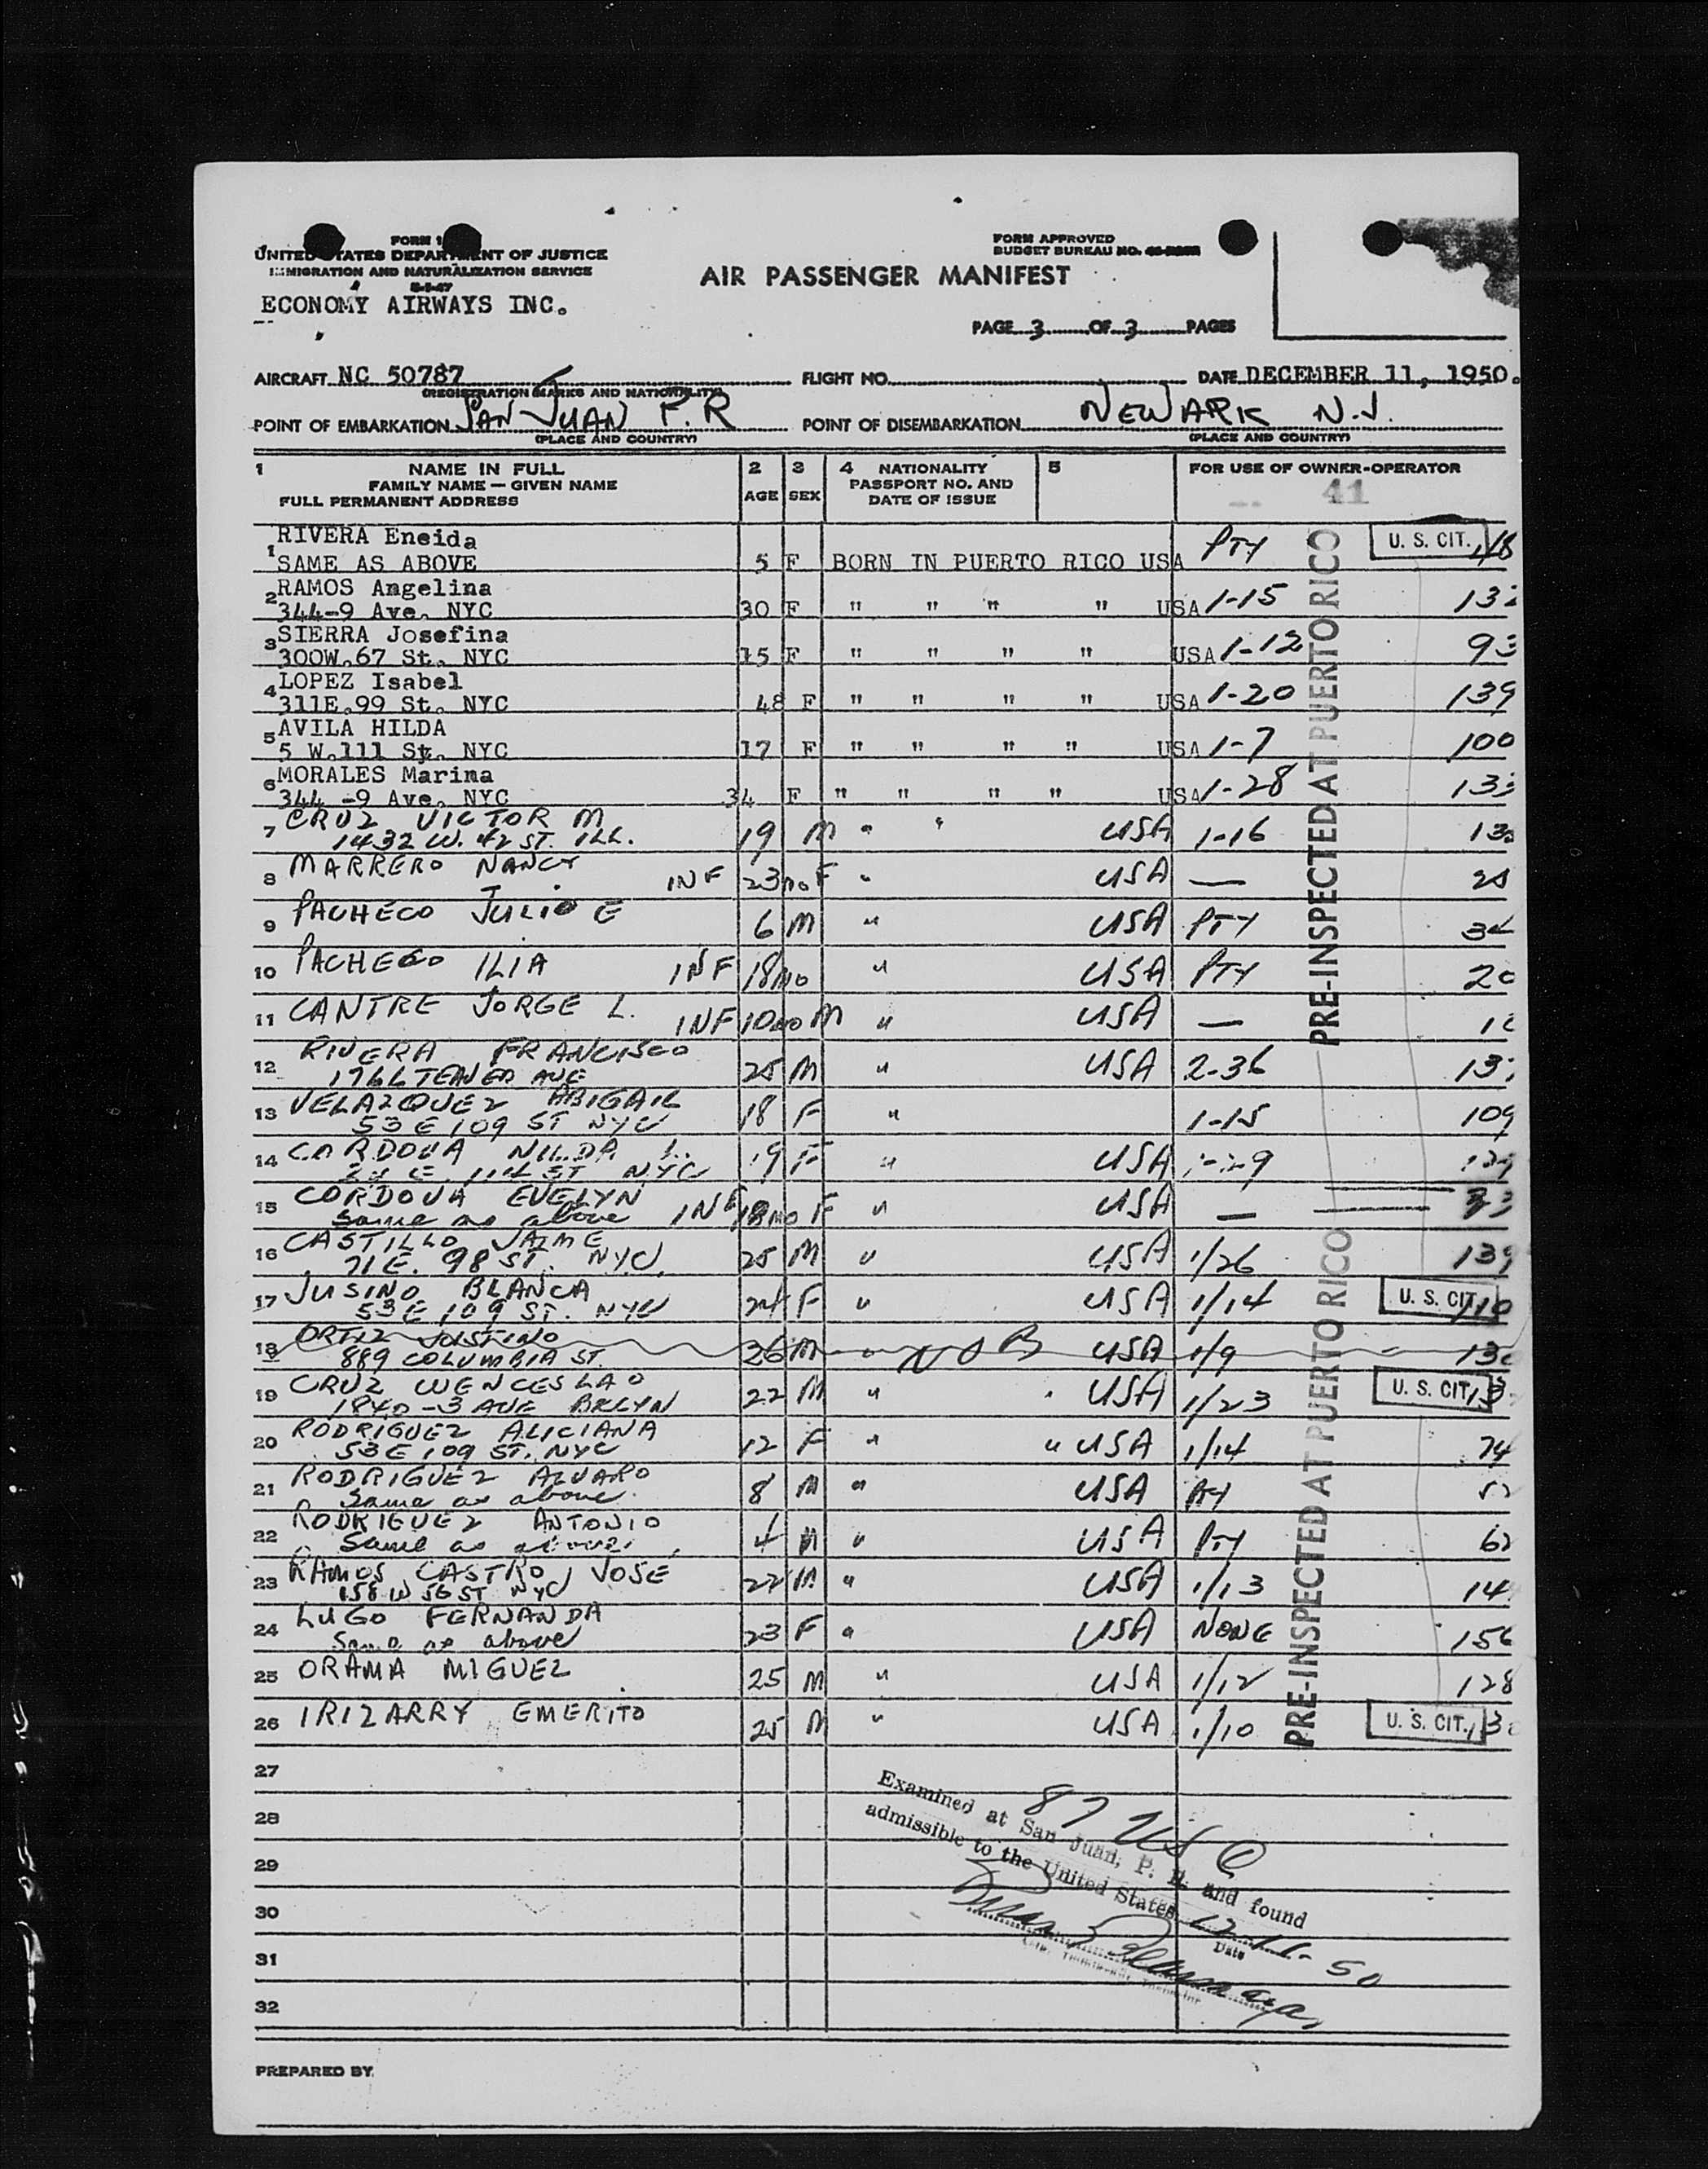 FORM 1
UNITED STATES DEPARTMENT OF JUSTICE
IMMIGRATION AND NATURALIZATION SERVICE
ECONOMY AIRWAYS INC.
FORM APPROVED
BUDGET BUREAU NO.
AIR PASSENGER MANIFEST
PAGE 3 OF 3 PAGES
AIRCRAFT NC 50787 FLIGHT NO. DATE DECEMBER 11, 1950.
(REGISTRATION MARKS AND NATIONALITY)
POINT OF EMBARKATION SAN JUAN P.R POINT OF DISEMBARKATION NEWARK N.J.
(PLACE AND COUNTRY) (PLACE AND COUNTRY)
1 NAME IN FULL 2 3 4 NATIONALITY 5 FOR USE OF OWNER-OPERATOR
FAMILY NAME — GIVEN NAME AGE SEX PASSPORT NO. AND
FULL PERMANENT ADDRESS DATE OF ISSUE 41
RIVERA Eneida
1 SAME AS ABOVE 5 F BORN IN PUERTO RICO USA PTY U. S. CIT.
RAMOS Angelina
2 344-9 Ave. NYC 30 F " " " " USA 1-15
SIERRA Josefina
3 300W.67 St. NYC 15 F " " " " USA 1-12
LOPEZ Isabel
4 311E.99 St. NYC 48 F " " " " USA 1-20 139
AVILA HILDA
5 5 W.111 St. NYC 17 F " " " " USA 1-7 100
MORALES Marina
6 344 -9 Ave. NYC 34 F " " " " USA 1-28
7 CRUZ VICTOR M
1432 W. 42 ST. ILL. 19 M " " USA 1-16
8 MARRERO NANCY INF 23mo F " USA —
9 PACHECO JULIO E 6 M " USA PTY
10 PACHECO ILIA INF 18mo " USA PTY 20
11 CANTRE JORGE L. INF 10mo M " USA —
12 RIVERA FRANCISCO
25 M " USA 2-36
13 VELAZQUEZ ABIGAIL
53 E 109 ST NYC 18 F " 1-15 109
14 CORDOVA NILDA
NYC 19 F " USA
15 CORDOVA EVELYN
Same as above INF 18mo F " USA —
16 CASTILLO JAIME
71 E. 98 ST. NYC 25 M " USA 1/26 139
17 JUSINO BLANCA
53 E 109 ST. NYC 24 F " USA 1/14 U. S. CIT. 110
18 ORTIZ JUSTINO
889 COLUMBIA ST. 26 M " NOB USA 1/9
19 CRUZ WENCESLAO
1840-3 AVE BKLYN 22 M " USA 1/23 U. S. CIT.
20 RODRIGUEZ ALICIANA
53 E 109 ST. NYC 12 F " " USA 1/14 74
21 RODRIGUEZ ALVARO
Same as above. 8 M " USA PTY
22 RODRIGUEZ ANTONIO
Same as above. 4 M " USA PTY
23 RAMOS CASTRO JOSE
158 W 56 ST NYC 22 M " USA 1/13
24 LUGO FERNANDA
Same as above 23 F " USA NONE 156
25 ORAMA MIGUEL 25 M " USA 1/12 128
26 IRIZARRY EMERITO 25 M " USA 1/10 U. S. CIT.
PRE-INSPECTED AT PUERTO RICO
PRE-INSPECTED AT PUERTO RICO
27
28
29
30
31
32
87 USC
Examined at San Juan, P. R. and found
admissible to the United States 12-11-50
Date
PREPARED BY